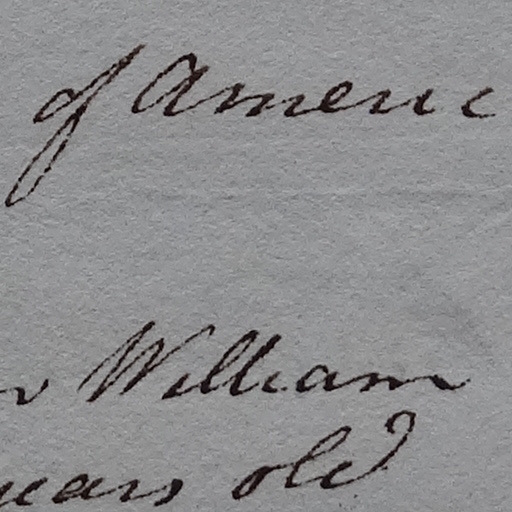 of Americ
William
years old